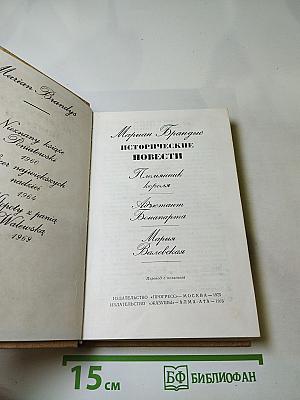 Marian Brandys
Nieznany książę
Poniatowski
1960
największych
nadziei
1964
Kłopoty z panią
Walewską
1969
Мариан Брандыс
ИСТОРИЧЕСКИЕ
ПОВЕСТИ
Племянник
короля
Адъютант
Бонапарта
Мария
Валевская
Перевод с польского
ИЗДАТЕЛЬСТВО «ПРОГРЕСС» — МОСКВА — 1975
ИЗДАТЕЛЬСТВО «ЖАЗУШЫ» — АЛМА-АТА — 1975
15 см
БФ БИБЛИОФАН